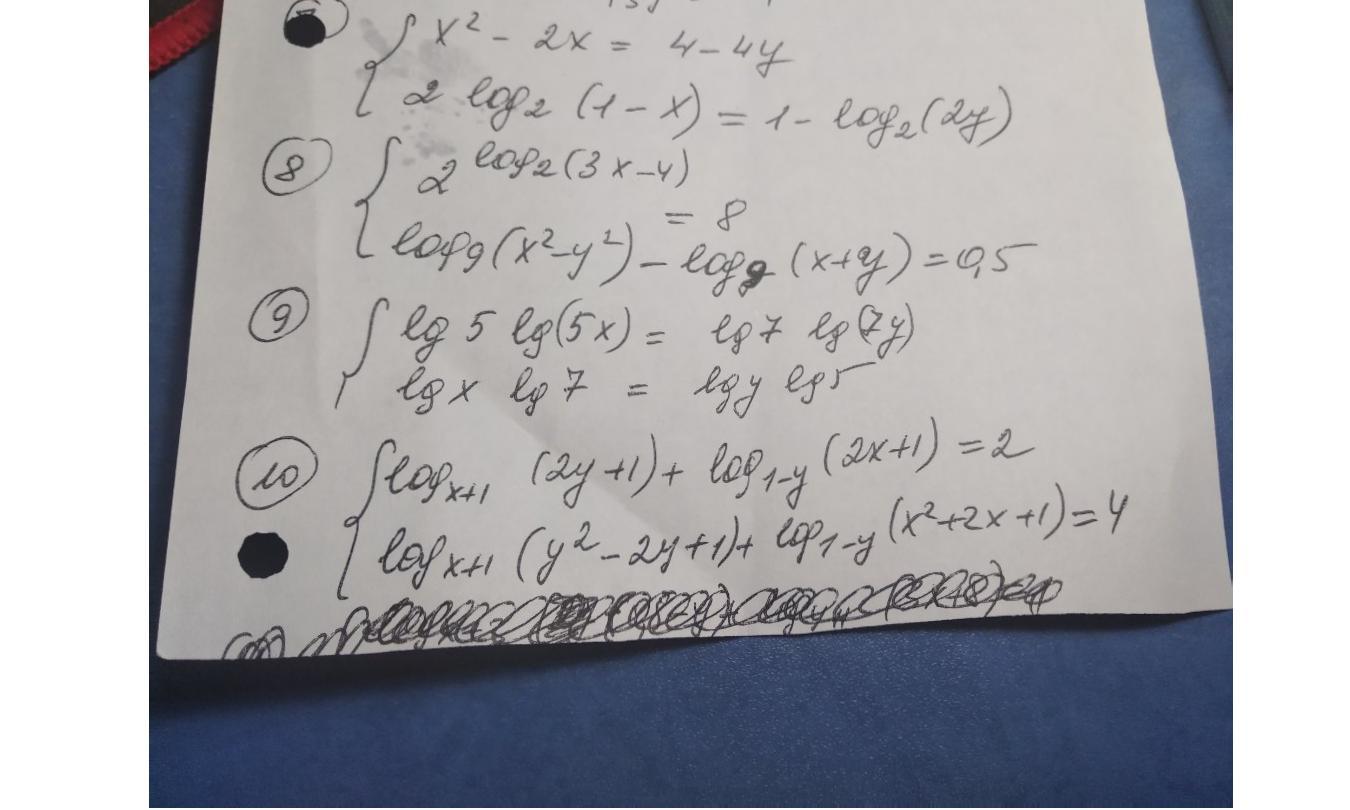 x² - 2x = 4 - 4y
2 log₂ (1 - x) = 1 - log₂(2y)
8 2^log₂(3x-4)
= 8
log₉(x²-y²) - log₉ (x+y) = 0,5
9 lg 5 lg(5x) = lg 7 lg(7y)
lg x lg 7 = lg y lg 5
10 logₓ₊₁ (2y+1) + log₁₋y (2x+1) = 2
logₓ₊₁ (y² - 2y + 1) + log₁₋y (x²+2x+1) = 4